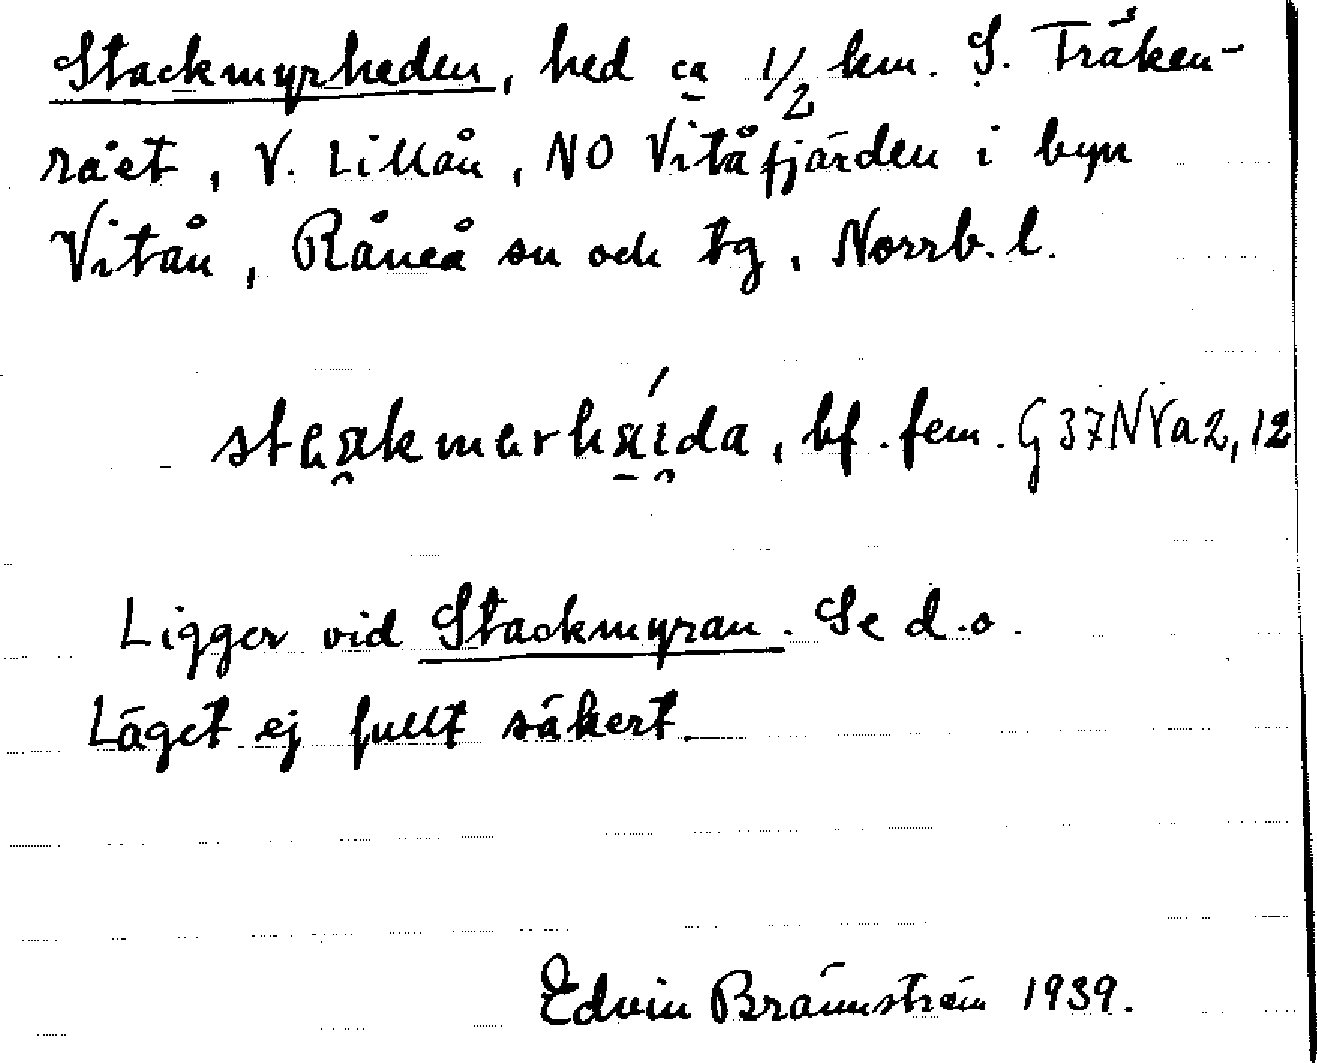 Stackmyrheden, hed ca 1/2 km. S. Träken-
rået, V. Lillån, NO Vitåfjärden i byn
Vitån, Råneå sn och tg, Norrb. l.
bf. fem. G37NYa2,12
Ligger vid Stackmyran. Se d.o.
Läget ej fullt säkert.
Edvin Brännström 1939.